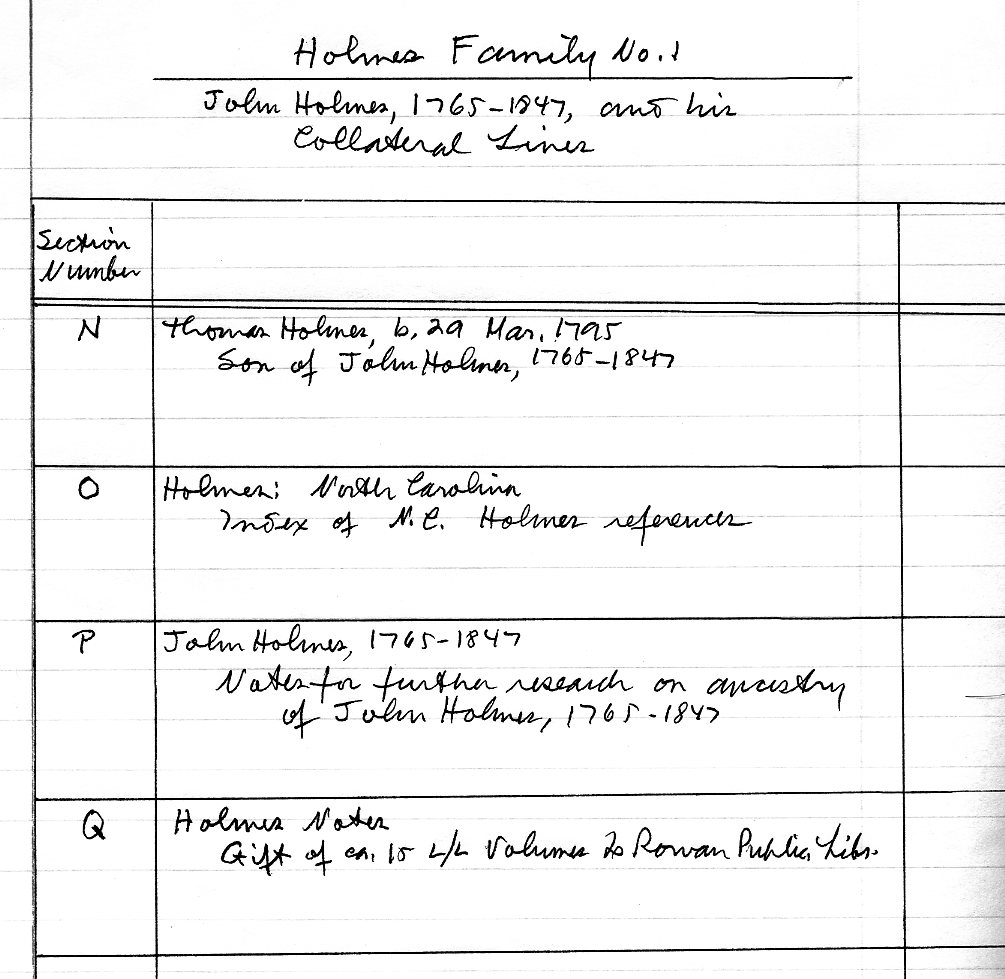 Holmes Family No. 1
John Holmes, 1765-1847, and his
Collateral Lines
Section
Number
N
Thomas Holmes, b. 29 Mar. 1795
Son of John Holmes, 1765-1847
O
Holmes: North Carolina
Index of N.C. Holmes references
P
John Holmes, 1765-1847
Notes for further research on ancestry
of John Holmes, 1765-1847
Q
Holmes Notes
Gift of ca. 15 L/L Volumes to Rowan Public Libr.